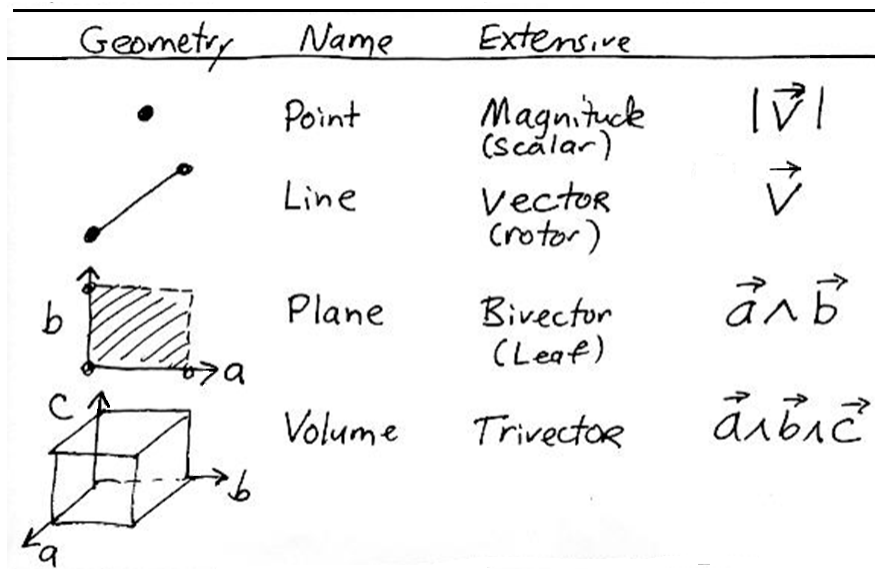 Geometry Name Extensive
Point Magnitude |V⃗|
(scalar)
Line Vector V⃗
(rotor)
b Plane Bivector a⃗ ∧ b⃗
(Leaf)
a
c Volume Trivector a⃗∧b⃗∧c⃗
b
a